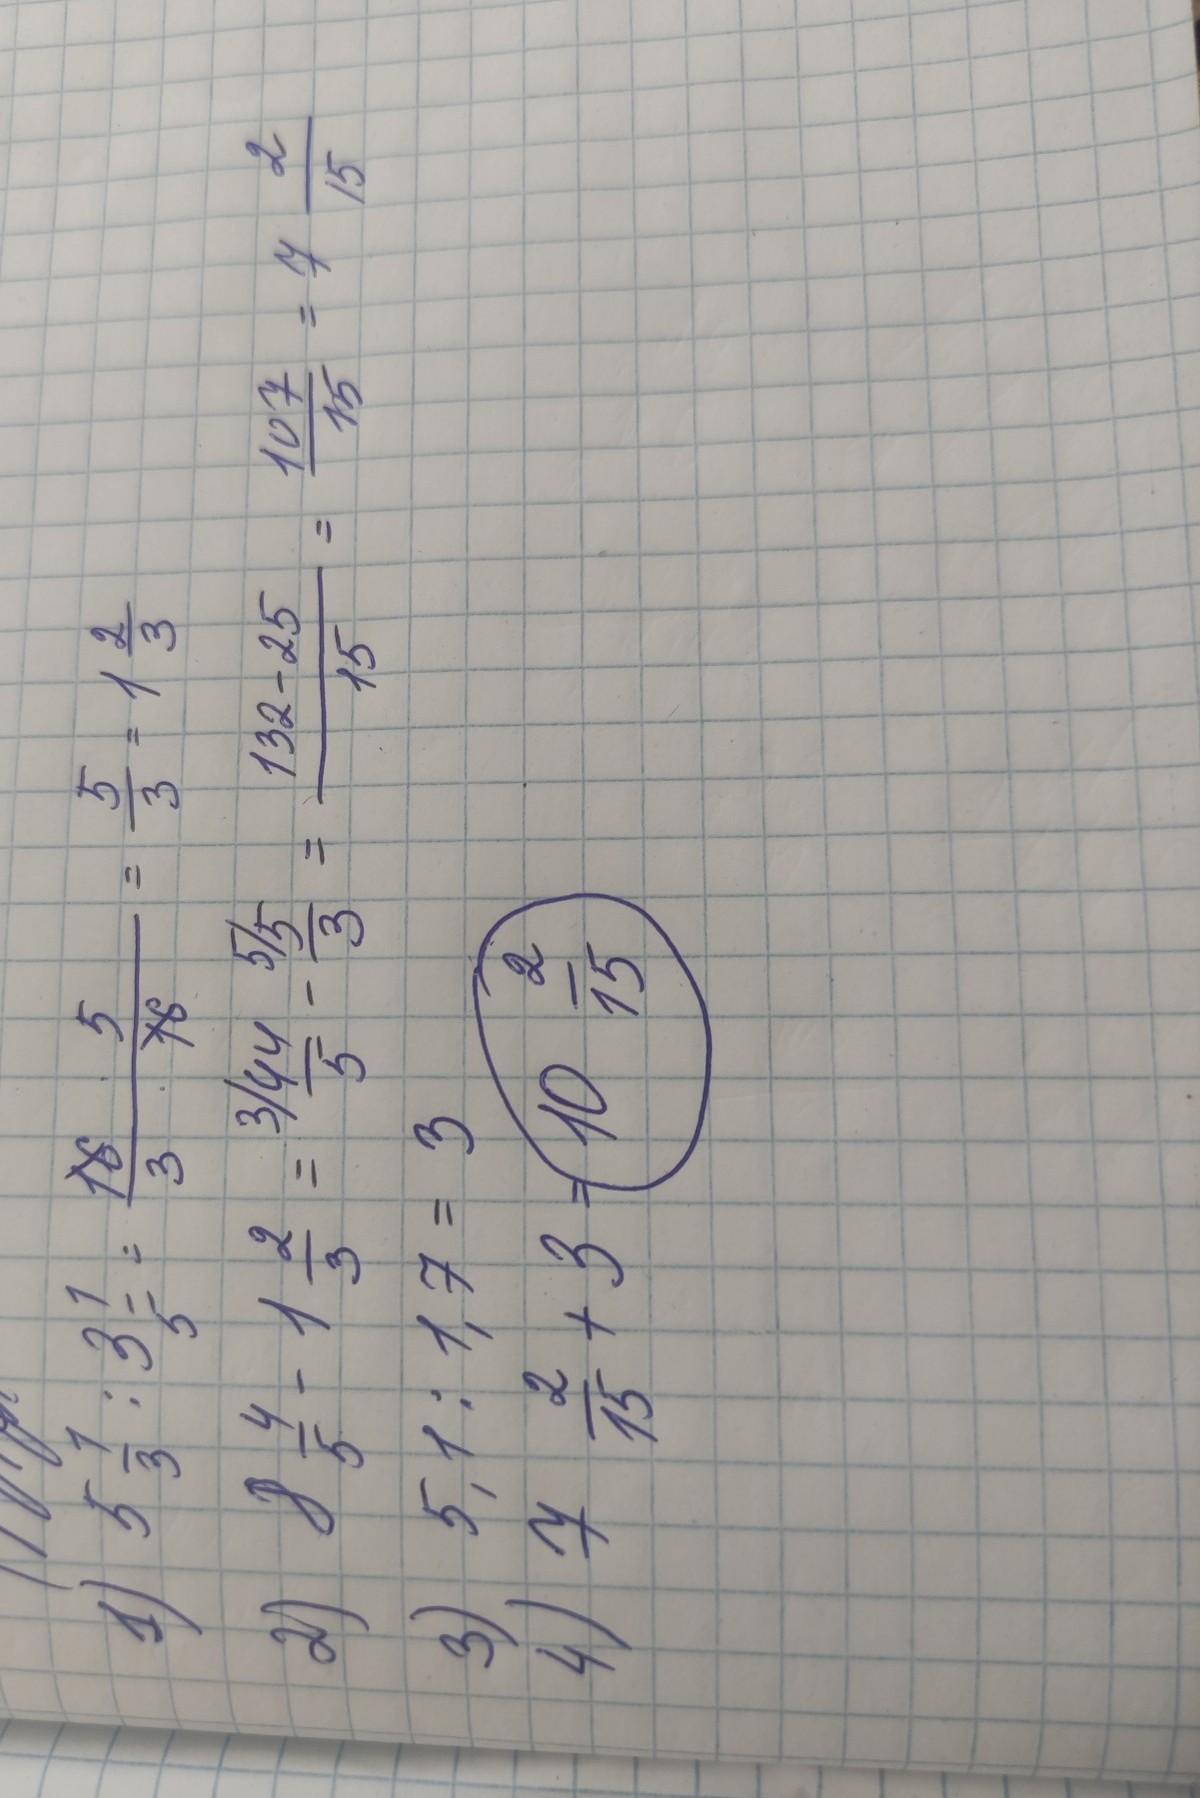 1) 5 1/3 : 3 1/5 = (16 · 5)/(3 · 16) = 5/3 = 1 2/3
2) 8 4/5 - 1 2/3 = 3/44/5 - 5/5/3 = (132-25)/15 = 107/15 = 7 2/15
3) 5,1 : 1,7 = 3
4) 7 2/15 + 3 = 10 2/15